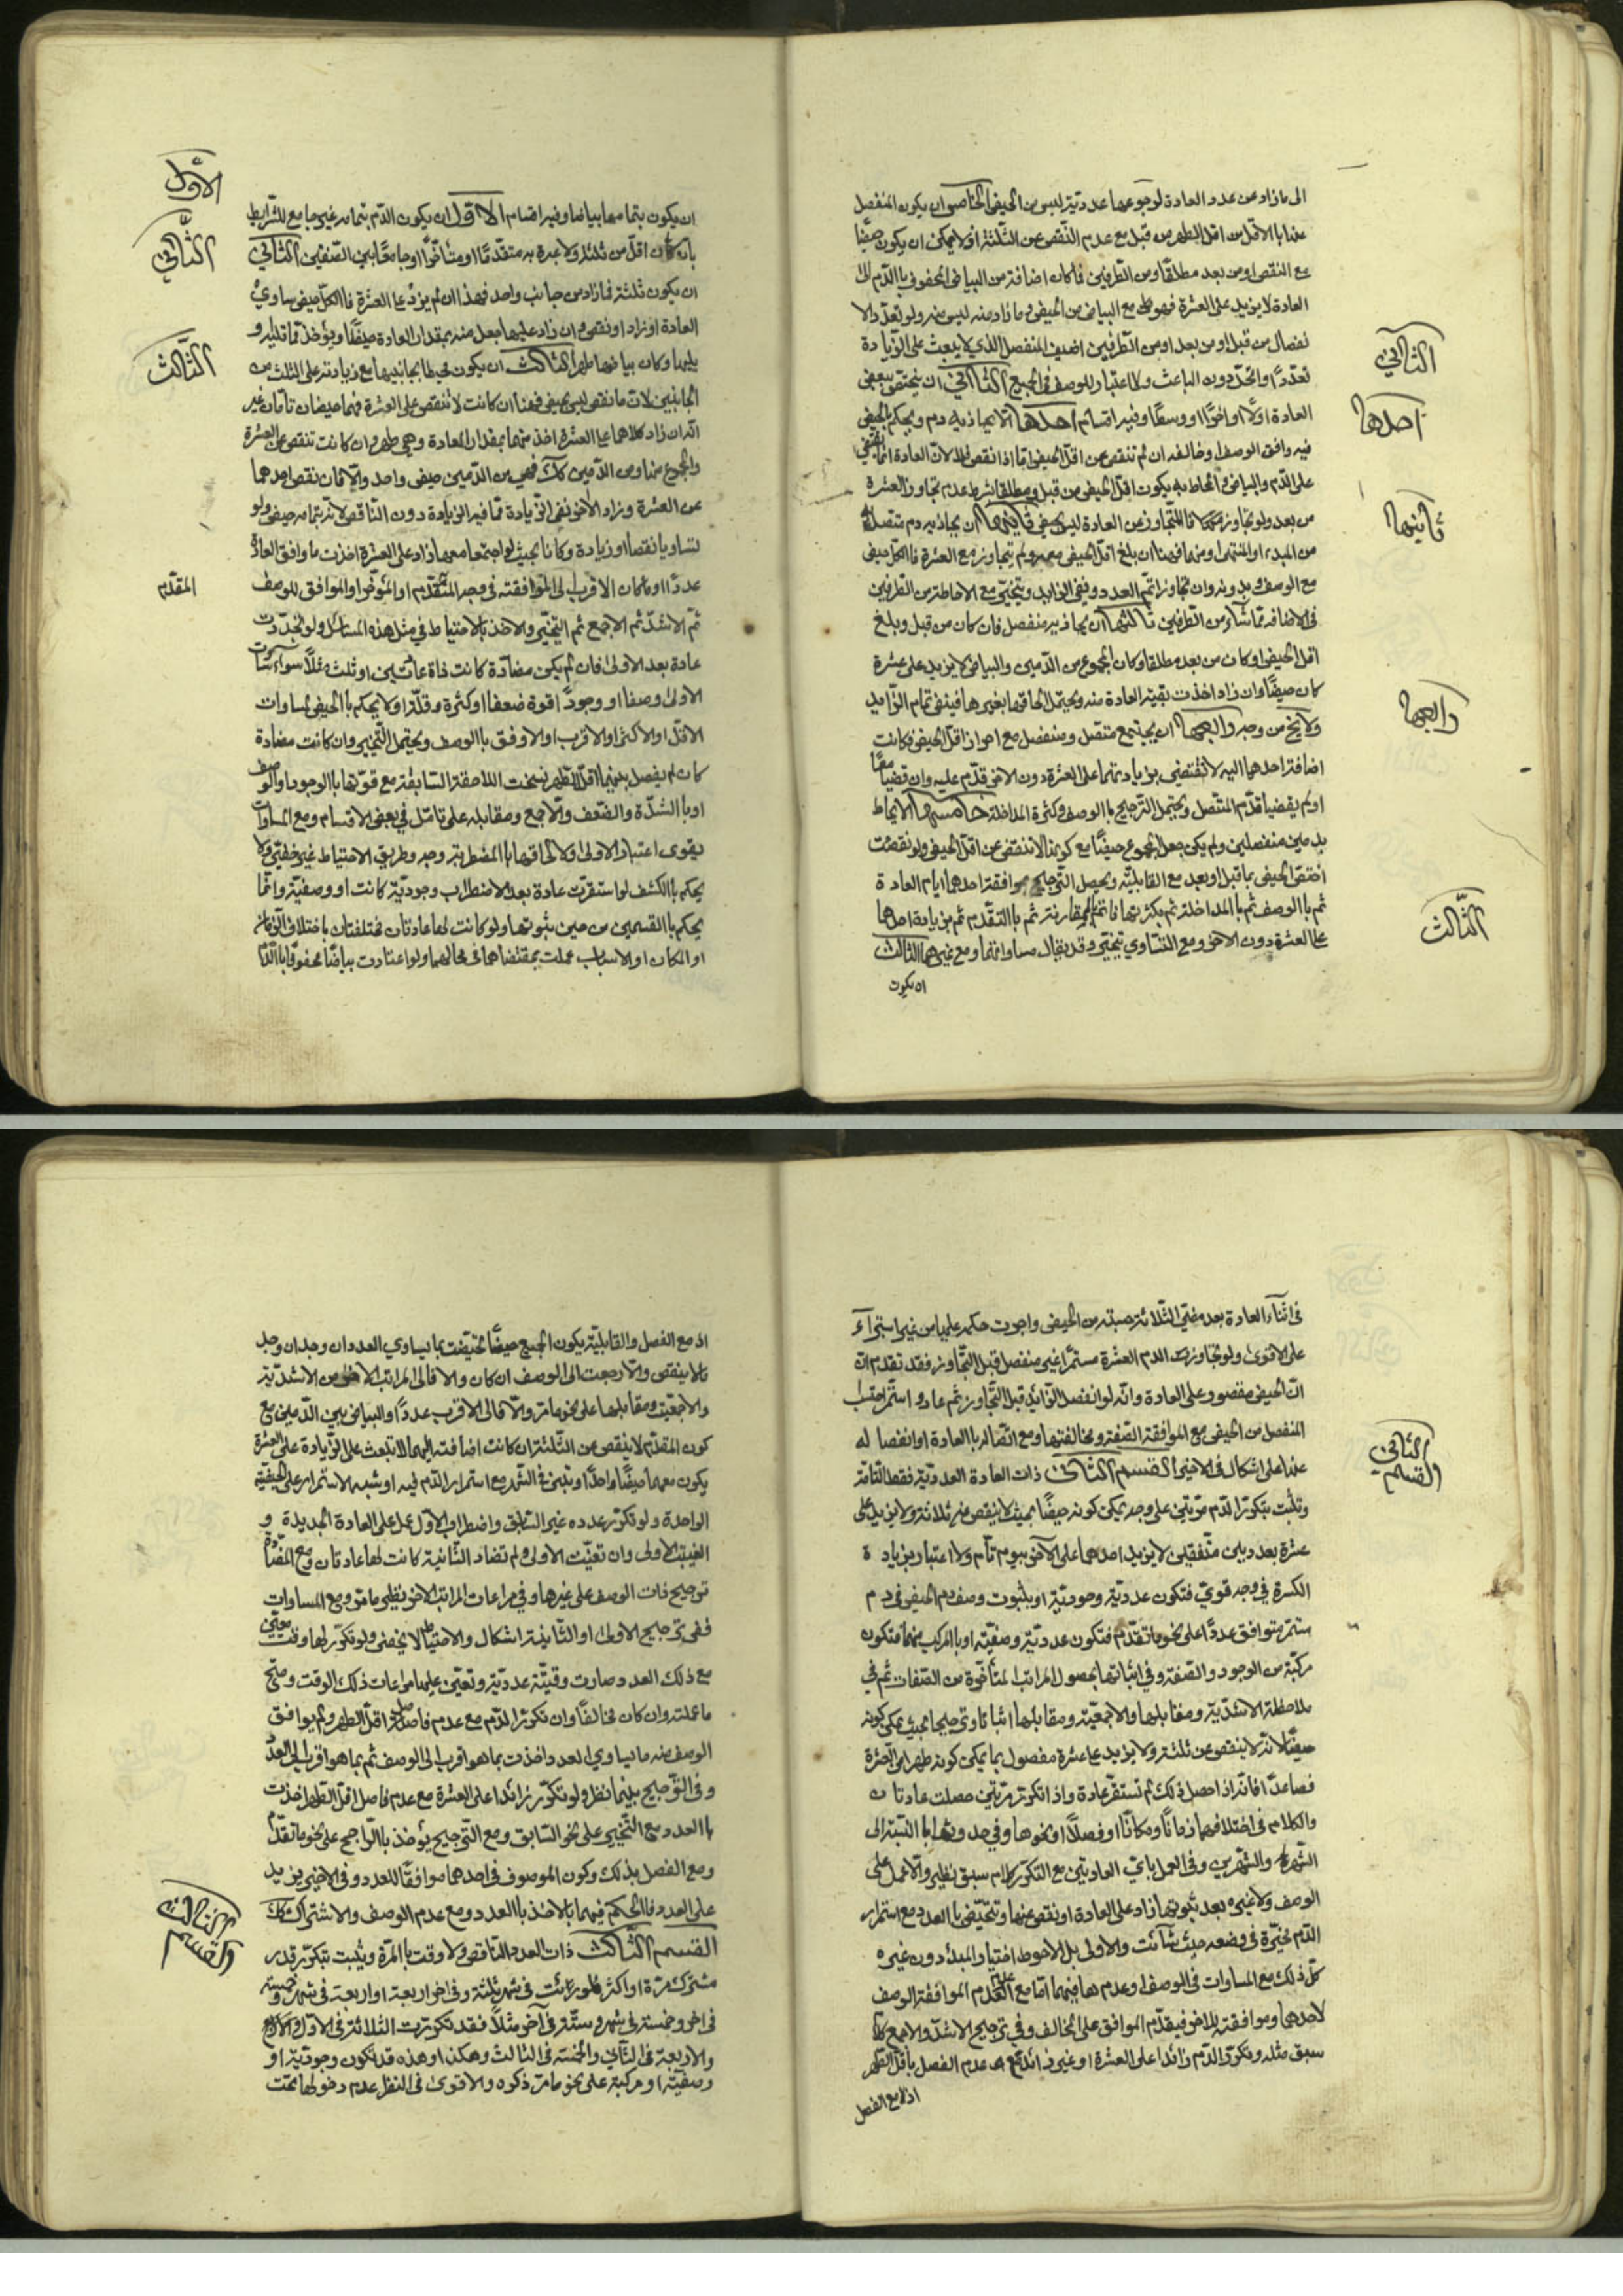 الى ما زاد من عدد العادة لوجوعها عدديّة ليس من الحيض الخامس ان يكون المنفصل
عنها بالاقل من اقل الطهر من قبل مع عدم النّقص عن الثّلثة اذ لا يمكن ان يكون حيضًا
مع النقص او من بعد مطلقًا ومن الطرفين فما كان اضافة من البياض المحفوف بالدّم الى
العادة لا يزيد على العشرة فهو مع البياض من الحيض وما زاد منه ليس منه ولو تعدّد الا
نفصال من قبل او من بعد او من الطّرفين اضيف المنفصل الذي لا يبعث على الزّيادة
تعدّدًا واتّحد دون الباعث ولا اعتبار للوصف في الجميع الثّاني ان يختصّ ببعض
العادة اوّلًا او اخرًا او وسطًا وفيه اقسام احدها الّا يحاذيه دم ويحكم بالحيض
فيه وافق الوصف او خالفه ان لم تنقص عن اقلّ الحيض امّا اذا نقص فلا لانّ العادة انّما تقضي
على الدّم والبياض المحاط به بكون اقلّ الحيض من قبل ومطلقا بشرط عدم تجاوز العشرة
من بعد ولو تجاوز فالمتجاوز عن العادة ليس بحيض ثانيها ان يحاذيه دم متّصل
من المبدء او المنتهى او منهما فهنا ان بلغ اقلّ الحيض معه ولم يتجاوز مع العشرة فالكلّ حيض
مع الوصف وبدونه وان تجاوزا تمّم العدد ونفي الزايد ويتخيّر مع الاحاطة من الطّرفين
في الاضافة ممّا شاء من الطّرفين ثالثها ان يحاذيه منفصل فان كان من قبل وبلغ
اقل الحيض او كان من بعد مطلقا وكان المجموع من الدّمين والبياض لا يزيد على عشرة
كان حيضًا وان زاد اخذت بقيّة العادة منه ويحتمل الحاقها بغيرها فينفى تمام الزّايد
ولا يخ من وجه رابعها ان يجتمع متّصل ومنفصل مع احراز اقلّ الحيض فكانت
اضافة احدهما اليه لا تقتضي بزيادتها على العشرة دون الاخر قدّم عليه وان قضيا معًا
او لم يقضيا قدّم المتّصل ويحتمل التّرجيح بالوصف وكثرة المداخلة خامسها الاحاطة
بدمين منفصلين ولم يكن جعل المجموع حيضًا مع كونها لا تنقص عن اقلّ الحيض ولو نقصت
اختصّ الحيض بما قبل او بعد مع القابليّة ويحصل التّرجيح بموافقة احدهما ايام العادة
ثم بالوصف ثم بالمداخلة ثم بكثرتها ثم بالتقدّم ثم بزيادة احدهما
على العشرة دون الاخر ومع التّساوي يتخيّر وقد يقال مساواتهما ومع غيرهما الثّالث
ان يكون
الثّاني
احدها
ثانيها
رابعها
الثّالث
ان يكون بتمامها بياضا وفيه اقسام الاوّل ان يكون الدّم بتمامه غير جامع للشّرايط
بان كان اقلّ من ثلثة ولا عبرة به متقدّمًا او متأخّرًا او جامعًا بين الصّنفين الثّاني
ان يكون ثلثة فما زاد من جانب واحد فهذا ان لم يزد على العشرة فالكلّ حيض ساوى
العادة او زاد او نقص وان زاد عليها جعل منه بمقدار العادة حيضًا ويؤخذ ممّا قبله و
يليها وكان بياضها طهرا الثّالث ان يكون محيطا بجانبيها مع زيادته على الثلث من
الجانبين لان ما نقص ليس بحيض فهنا ان كانت لا تنقص على العشرة فهما حيضان تامّان غير
انّه ان زاد كلاهما على العشرة اخذ منهما بمقدار العادة وهي طهر وان كانت تنقص عن العشرة
والمجموع منها ومن الدّمين كذلك فهي من الدّمين حيض واحد والّا فان نقص احدهما
عن العشرة وزاد الاخر نفى الزّيادة ممّا فيه الزّيادة دون النّاقص لانّه بتمامه حيض ولو
تساويا نقصا او زيادة وكانا بحيث لو اجتمعا معها زاد على العشرة اخذت ما وافق العادة
عددًا او ما كان الاقرب الى الموافقة وفي وجه المتقدّم او المؤخّر او الموافق للوصف
ثمّ الاشدّ ثم الاجمع ثم التّخيّر والاخذ بالاحتياط في مثل هذه المسائل ولو تجدّدت
عادة بعد الاولى فان لم يكن مضادّة كانت ذاة عادتين او ثلث مثلًا سواء ساوت
الاولى وصفا او وجودًا قوة ضعفا او كثرة وقلّة ولا يحكم بالحيض لمساوات
الاقلّ او الاكثر او الاقرب او الاوفق بالوصف ويحتمل التّخيير وان كانت مضادة
كان لم يفصل بينهما اقلّ الطّهر نسخت اللاحقة السّابقة مع قوّتها بالوجود او الوصف
او بالشدّة والضّعف والاجمع ومقابله على تامّل في بعض الاقسام ومع المساوات
يقوى اعتبار الاولى ولالحاقها بالمضطربة وجه وطريق الاحتياط غير خفيّ ولا
يحكم بالكشف لو استقرّت عادة بعد الاضطراب وجوديّة كانت او وصفيّة وانّما
يحكم بالقسمين من حين ثبوتها ولو كانت لها عادتان مختلفتان باختلاف الزّمان
او المكان او الاسباب عملت بمقتضاهما في محالهما ولو اعتادت بياضًا محفوفًا بالدّم
الاوّل
الثّاني
الثّالث
المقدّم
في اثناء العادة بعد مضيّ الثّلاثة حسبته من الحيض واجرت حكمه عليها من غير استبراء
على الاقوى ولو تجاوز الدم العشرة مستمرّا غير منفصل قبل التّجاوز فقد تقدم انّ
انّ الحيض مقصور على العادة وانّه لو انفصل الزّائد قبل التّجاوز ثم عاد واستمرّ احتسب
المنفصل من الحيض مع الموافقة الصّفة ومخالفتها ومع اتّصاله بالعادة او انفصاله
عنها على اشكال في الاخير القسم الثّاني ذات العادة العدديّة فقط التّامّة
وتثبت بتكرّر الدّم مرّتين على وجه يمكن كونه حيضًا بحيث لا ينقص عن ثلاثة ولا يزيد على
عشرة بعددين متّفقين لا يزيد احدهما على الآخر بيوم تامّ ولا اعتبار بزيادة
الكسرة في وجه قويّ فتكون عدديّة وجوديّة او بثبوت وصف دم الحيض في دم
مستمرّ متوافق عددًا على نحو ما تقدّم فتكون عدديّة وصفيّة او بالمركب منهما فتكون
مركبّة من الوجود والصّفة وفي اثباتها بحصول المراتب المتأخّرة من الصّفات ثم في
ملاحظة الاشدّيّة ومقابلها والاجمعيّة ومقابلها اثباتا وترجيحا بحيث يمكن كونه
حيضًا لانّه لا ينقص عن ثلثة ولا يزيد على عشرة مفصول بما يمكن كونه طهرا من العشرة
فصاعدًا فانّه اذا حصل ذلك لم تستقرّ عادة واذا تكرّر مرّتين حصلت عادتان
والكلام في اختلافهما زمانًا ومكانًا او فصلًا او نحوها وفي حدوثها بالنّسبة الى
الشّهر والشّهرين وفي العمل بايّ العادتين مع التكرّر كلام سبق نظيره والّا عمل على
الوصف ولا غيره بعد ثبوتها زاد على العادة او نقص عنها وتتحيّض بالعدد مع استمرار
الدّم مخيّرة في وضعه حيث شائت والاولى بل الاحوط اختيار المبدء دون غيره
كلّ ذلك مع المساوات في الوصف او عدمها فيهما امّا مع العدم الموافقة الوصف
لاحدهما وموافقته للاخر فيقدّم الموافق على المخالف وفي ترجيح الاشدّ والاجمع كلام
سبق مثله وتكرّر الدّم زائدا على العشرة او غير زائد مع عدم الفصل باقلّ الطّهر
اذ مع الفصل
الثّاني
القسم
اذ مع الفصل والقابليّة يكون الجميع حيضًا تحيّضت بما يساوي العدد ان وجد ان وجد
بلا ينقص والّا رجعت الى الوصف ان كان والا فالى المراتب الاخر من الاشدّيّة
والاجمعيّة ومقابلها على نحو ما مرّ والّا فالى الاقرب عددًا والبياض بين الدّمين مع
كون المقدّم لا ينقص عن الثّلثة ان كانت اضافته اليهما لا تبعث على الزّيادة على العشرة
يكون معهما حيضًا واحدًا وتبنى في الشّهر مع استمرار الدّم فيه او شبه الاستمرار على الحيضيّة
الواحدة ولو تكرّر عدد غير السّابق واضطراب الاوّل عمل على العادة الجديدة و
الغيت الاولى وان تعيّنت الاولى ولم تضاد الثّانية كانت لها عادتان ومع المضادّة
ترجيح ذات الوصف على غيرها وفي مراعات المراتب الاخر نظير ما مرّ ومع المساوات
ففي ترجيح الاولى او الثّانية اشكال والاحتياط لا يخفى ولو تكرّر لها وقت معيّن
مع ذلك العدد صارت وقتيّة عدديّة وتعيّن عليها مراعات ذلك الوقت وصحّ
ما عملته وان كان مخالفًا وان تكرّر الدّم مع عدم فاصل اقلّ الطهر ولم يوافق
الوصف منه ما يساوي العدد اخذت بما هو اقرب الى الوصف ثم بما هو اقرب الى العدد
وفي التّرجيح بينهما نظر ولو تكرّر زائدا على العشرة مع عدم فاصل اقلّ الطهر اخذت
بالعدد مع التّخيير على نحو السّابق ومع التّرجيح يؤخذ بالرّاجح على نحو ما تقدّم
ومع الفصل بذلك وكون الموصوف في احدهما موافقًا للعدد وفي الاخير يزيد
على العدد فالحكم فيهما بالاخذ بالعدد ومع عدم الوصف والاشتراك كذلك
القسم الثّالث ذات العدد النّاقص ولا وقت بالمرّة ويثبت بتكرّر قدر
مشترك مرّة او اكثر فلو رائت في شهر ثلثة وفي اخر اربعة او اربعة في شهر وخمسة
في اخر وخمسة في شهر وستّة في آخر مثلًا فقد تكرّرت الثلاثة في الاوّل
والاربعة في الثّاني والخمسة في الثّالث وهكذا وهذه قد تكون وجوديّة او
وصفيّة او مركبة على نحو ما مرّ ذكره والاقوى في النظر عدم دخولها تحت
الثّالث
القسم